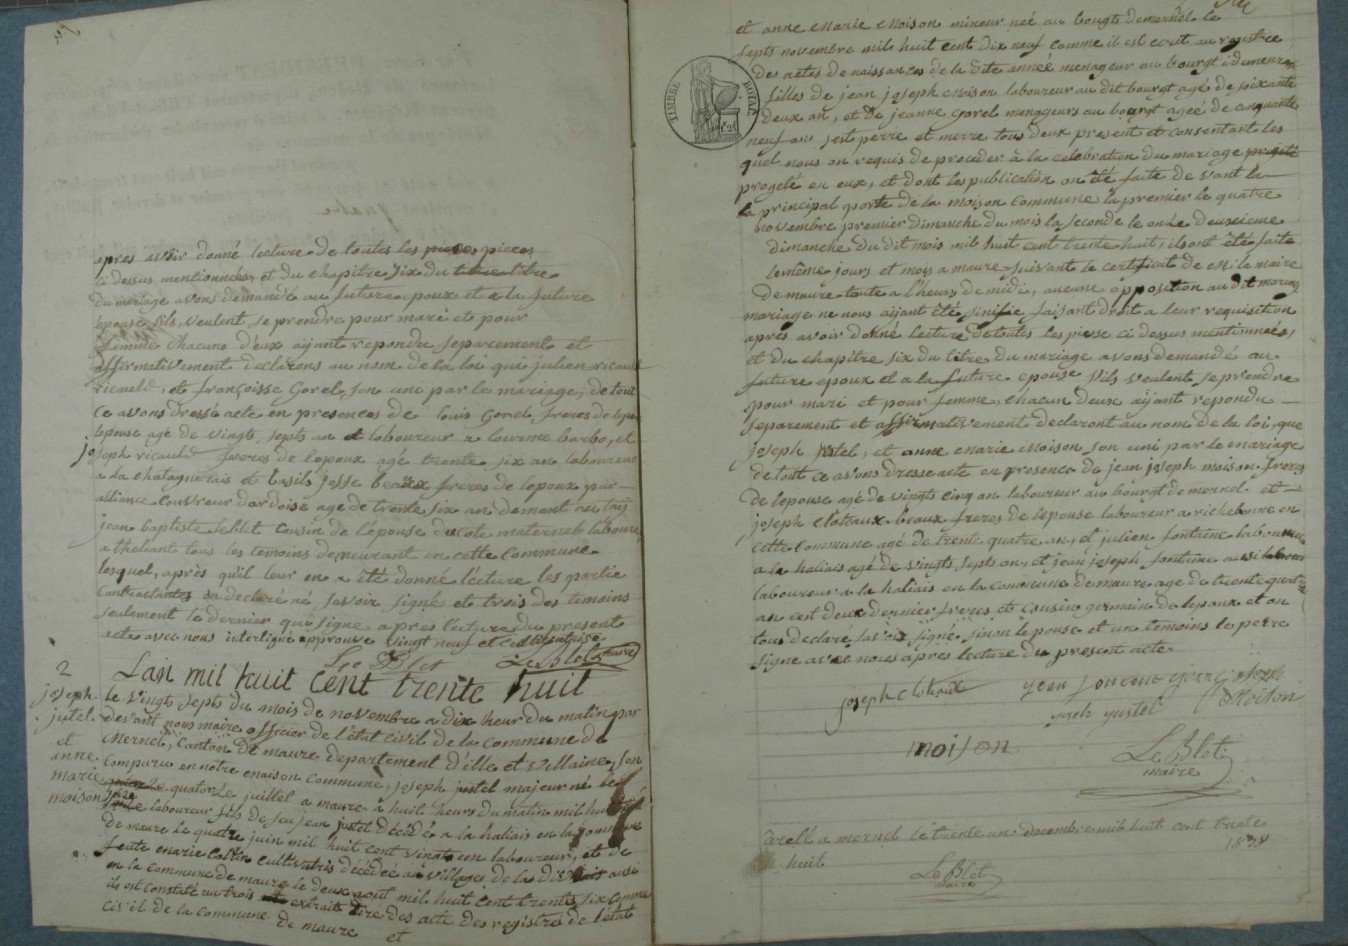 apres avoir donné lecture de toutes les pieces pieces
ci dessus mentionnées, et du chapitre six du titre titre
du mariage avons demandé au futur epoux et a la future
epouse s'ils veulent se prendre pour mari et pour
femme chacuns d'eux aijant repondu separement et
affirmativement declarons au nom de la loi que julien ricault
ricauld, et françoisse Gorel, son uni par le mariage, de tout
ce avons dressé acte en presences de louis Gorel, freres de
lepouse agé de vingts, septs an et laboureur a
joseph ricauld freres de lepoux agé trente six an laboureur
a la chatagnerais et basils josse beaux freres de lepoux par
alliance Couvreur dardoise age de trente six an demeurant au
jean baptiste leblet cousin de l'épouse du coté maternels laboureur
a theliant tous les temoins demeurant en cette commune
lesquel, après quil leur en a été donné lécture les partie
contractantes on declaré né savoir signé et trois des temoins
seulement le dernier qui signe apres lecture du present
acte avec nous interligné approuve vingt neuf et cultivatrise
Le Blet Le Blet maire
2
joseph
jutel.
et
anne
marie
moison
Lan mil huit Cent trente huit
le vingts septs du mois de novembre a dix heur du matin par
devant nous maire officier de l'état civil de la commune de
Mernel, Canton de maure departement d'ille et villaine, son
comparu en notre maison commune, joseph justel majeur né le
quatorze quatorze juillet a maure à huit heurs du matin mil huit
laboureur fils de feu jean justel décédé a la haliais en la commune
de maure le quatre juin mil huit cent vingts un laboureur, et de
feute marie Collin cultivatris décédée au villages de la aussi
en la commune de maure le deux aout mil huit cent trente six comme
ils est constaté au trois extraits tire des acte des registres de l'état
civil de la commune de maure et
et anne marie moison mineur née au bourgt de mernel le
septs novembre mil huit cent dix neuf comme il est ecrit au registre
des actes de naissances de la dite année menageur au bourgt i demeurant
filles de jean joseph moison laboureur au dit bourgt agé de soixante
deux an, et de jeanne Gorel menageurs au bourgt ageé de cinquante
neuf an, s est perre et merre tous deux present et consentant les
quel nous on requis de proceder à la celebration du mariage progeté
progeté en eux, et dont les publication on été faite devant la
la principal porte de la moison commune la premier le quatre
novembre premier dimanche du mois la seconde le onze deuxieme
dimanche du dit mois mil huit cent trente huit, ils ont été faite
le même jours et mois a maure suivant le certificat de M. le maire
de maure toute a l'heurs de midi, aucune opposition au dit mariage
mariage ne nous aijant été sinifié faisant droit a leur requisition
après avoir donné lecture de toutes les piese ci dessus mentionneés,
et du chapitre six du titre du mariage avons demandé au
future epoux et a la future epouse s'ils veulent se prendre
pour mari et pour femme, chacun deux aijant repondu
separement et affirmativement declaront au nom de la loi, que
joseph justel, et anne marie moison son uni par le mariage
de tout ce avons dresse acte en presence de jean joseph moison frere
de lepouse agé de vingts cinq an laboureur au bourgt de mernel. et
joseph cloteaux beaux freres de lepouse laboureur a richebonne en
cette commune agé de trente quatre an, et julien fontaine laboureur
a la haliais agé de vingts septs an, et jean joseph fontaine aussi laboureur
laboureur a la haliais en la commune de maure age de trente quatre
an cest deux dernier freres et cousin germain de lepaux et on
tous declare savoir signé sinon le pouse et un temoins le perre
signe avec nous apres lecture du present acte
TIMBRE ROYAL
joseph
moison
Le Blet
maire
arrété a mernel le trente un decembre mil huit cent trante
huit 1838
Le Blet
maire